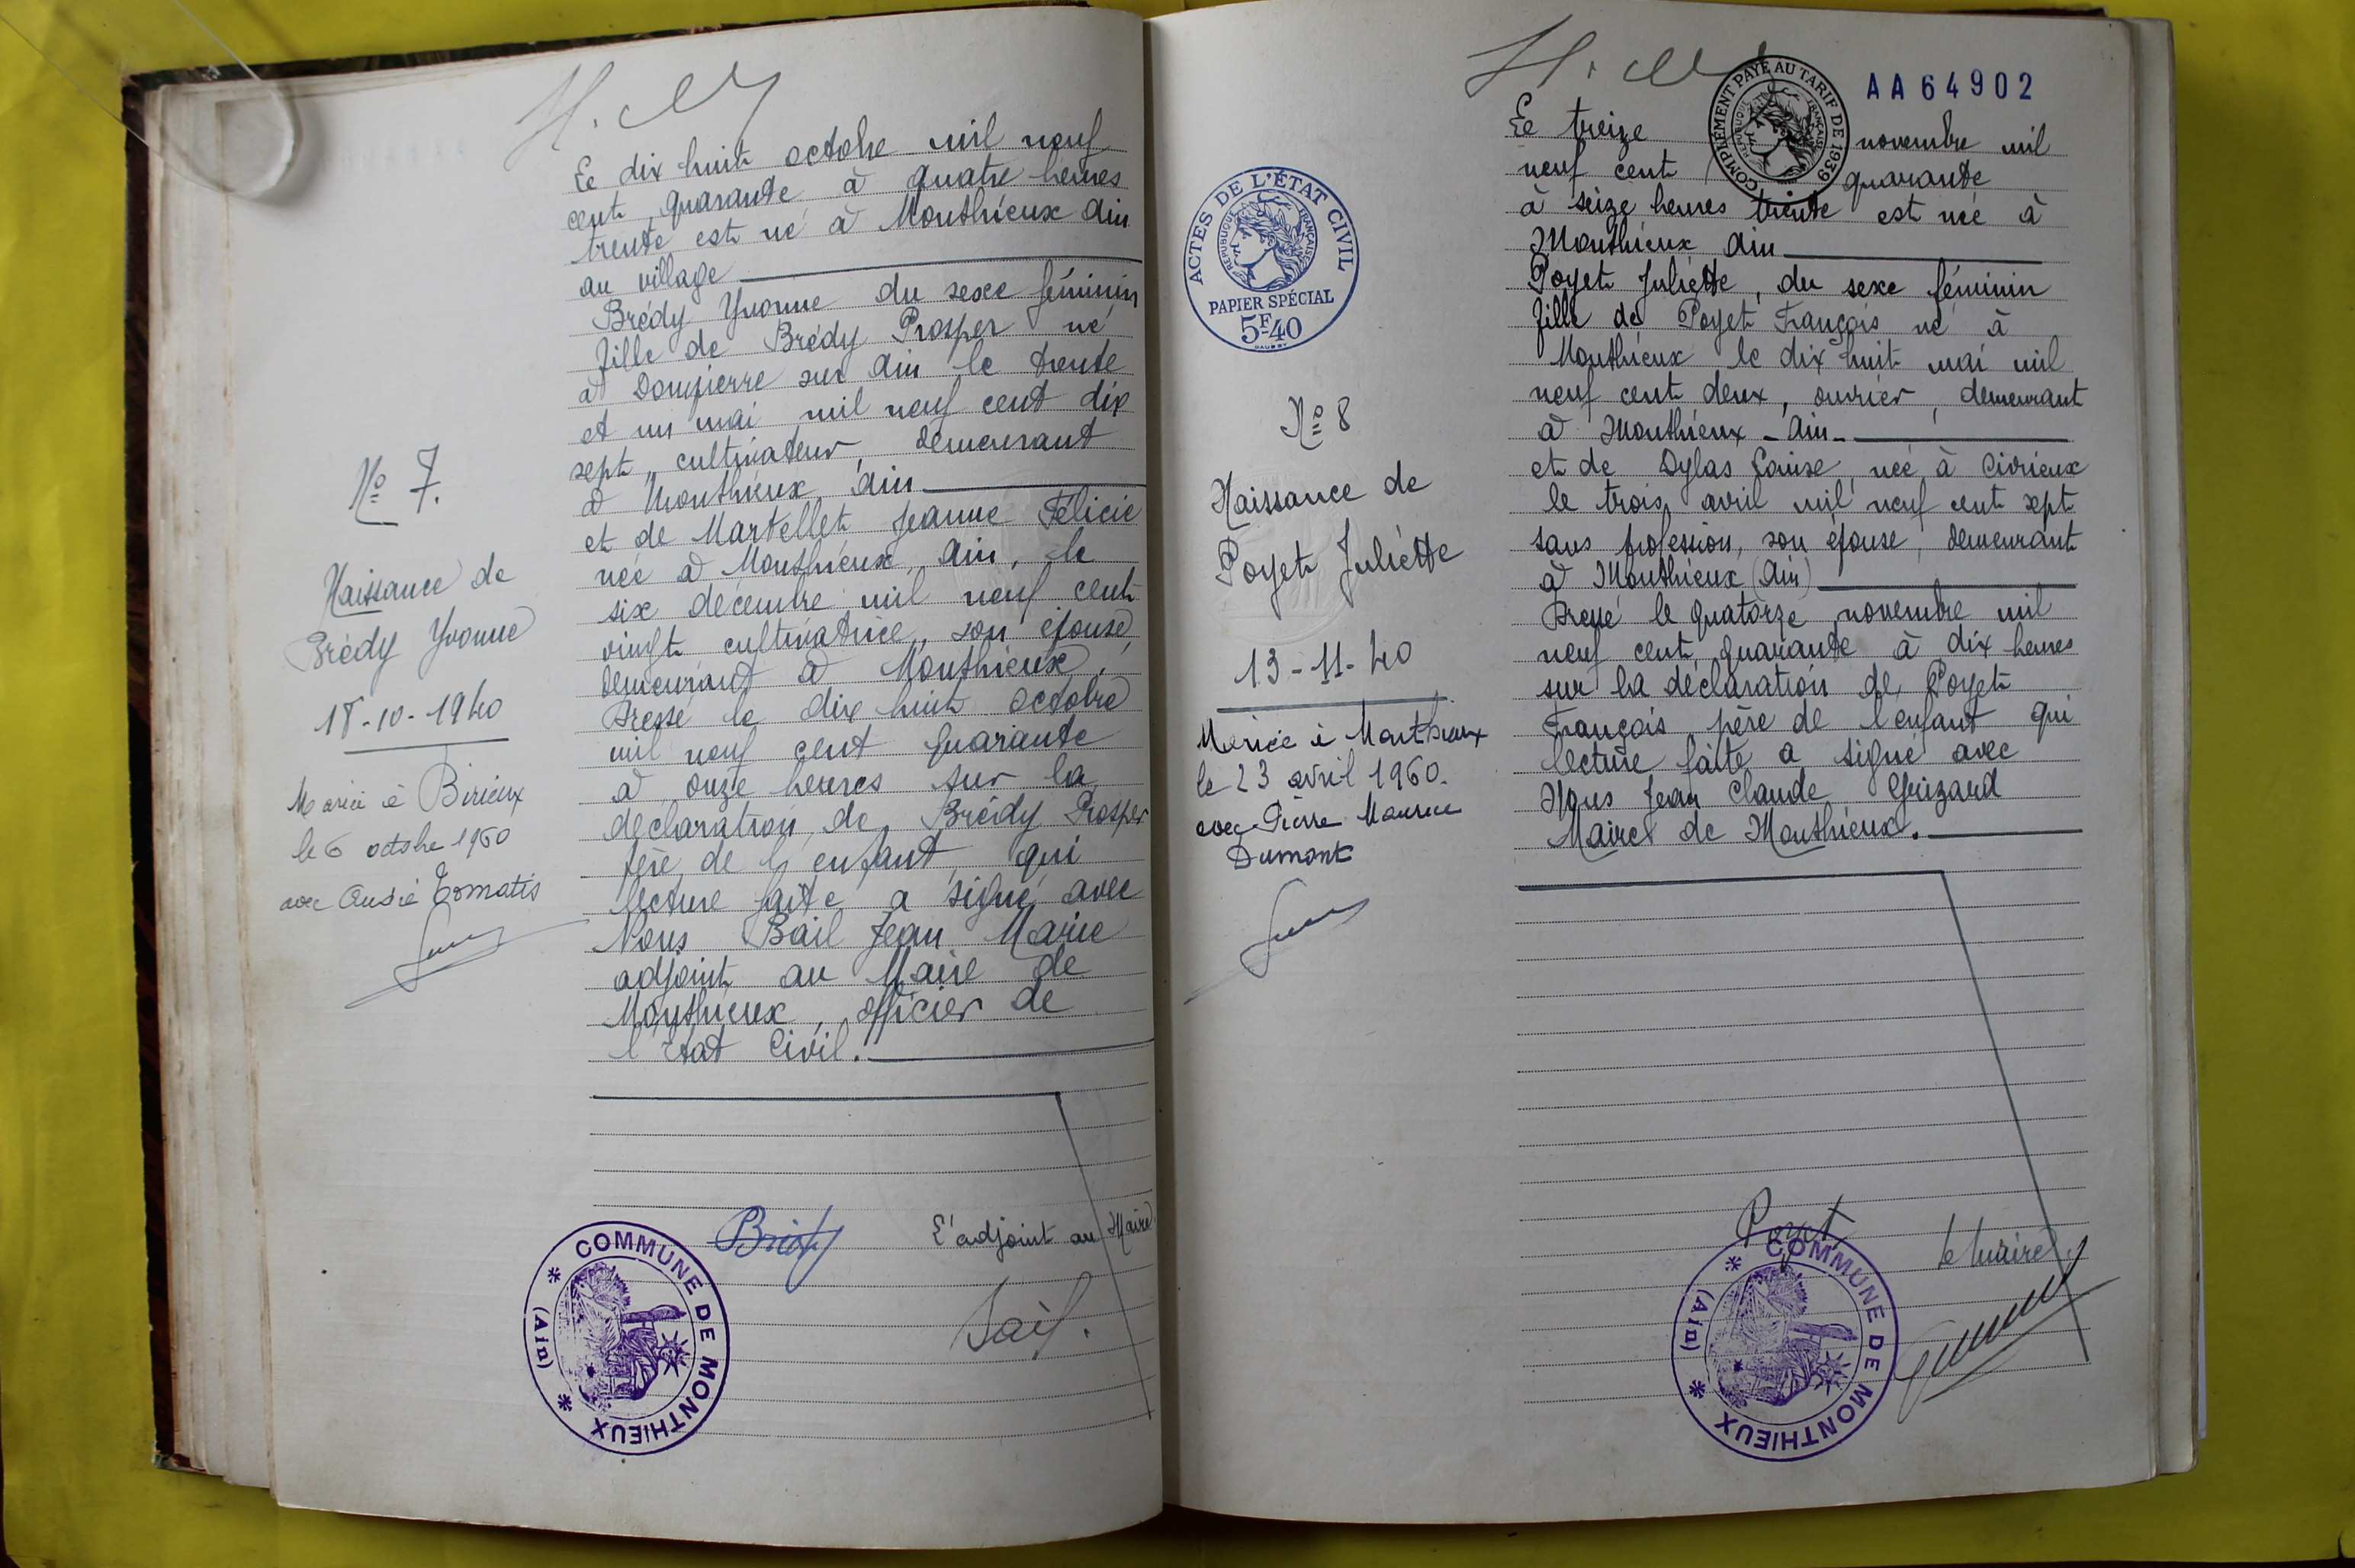 Le dix huit octobre mil neuf
cent quarante à quatre heures
trente est né à Monthieux Ain
au village
Brédy Yvonne du sexe féminin
fille de Brédy Prosper né
à Dompierre sur Ain le trente
et un mai mil neuf cent dix
sept, cultivateur, demeurant
à Monthieux Ain
et de Martellet Jeanne Félicie
née à Monthieux, Ain, le
six décembre mil neuf cent
vingt cultivatrice, son épouse
demeurant à Monthieux.
Dressé le dix huit octobre
mil neuf cent quarante
à onze heures sur la
déclaration de Brédy Prosper
père de l'enfant, qui
lecture faite a signé avec
Nous Bail Jean Marie
adjoint au Maire de
Monthieux, officier de
l'Etat Civil.
Nº 7.
Naissance de
Brédy Yvonne
18-10-1940
Mariée à Birieux
le 6 octobre 1960
avec André Tomatis
Brédy
L'adjoint au Maire
Bail.
COMMUNE DE MONTHIEUX
(Ain)
AA64902
COMPLÉMENT PAYÉ AU TARIF DE 1939
RÉPUBLIQUE FRANÇAISE
ACTES DE L'ÉTAT CIVIL
RÉPUBLIQUE FRANÇAISE
PAPIER SPÉCIAL
5F40
Nº 8
Naissance de
Poyet Juliétte
13-11-40
Mariée à Monthieux
le 23 avril 1960.
avec Pierre Maurice
Dumont
Le treize novembre mil
neuf cent quarante
à seize heures trente est née à
Monthieux Ain
Poyet Juliétte, du sexe féminin
fille de Poyet François né à
Monthieux le dix huit mai mil
neuf cent deux, ouvrier, demeurant
à Monthieux - Ain -
et de Dylas Louise, née à Civrieux
le trois avril mil neuf cent sept
sans profession, son épouse, demeurant
à Monthieux (Ain)
Dressé le quatorze novembre mil
neuf cent quarante à dix heures
sur la déclaration de Poyet
François père de l'enfant qui
lecture faite a signé avec
Nous Jean Claude Guizard
Maire de Monthieux.
Poyet
le Maire
COMMUNE DE MONTHIEUX
(Ain)